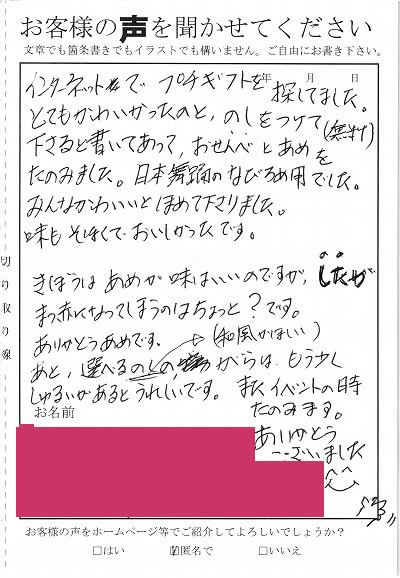 お客様の声を聞かせてください
文章でも箇条書きでもイラストでも構いません。ご自由にお書き下さい。
年　月　日
インターネットで プチギフトを 探してました。
とてもかわいかったのと, のしをつけて(無料)
下さると書いてあって, おせんべとあめを
たのみました。日本舞踊のなびろめ用でした。
みんなかわいいと ほめて下さりました。
味も そぼくで おいしかったです。
きぼうは あめが 味はいいのですが, したが
まっ赤になってしまうのはちょっと？です。
ありがとうあめです。
(和風がほしい)
あと, 選べるのしの からは もう少し
しゅるいがあると うれしいです。
また イベントの時
たのみます。
ありがとう
ございました
お名前
お客様の声をホームページ等でご紹介してよろしいでしょうか？
□はい ☑匿名で □いいえ
切り取り線